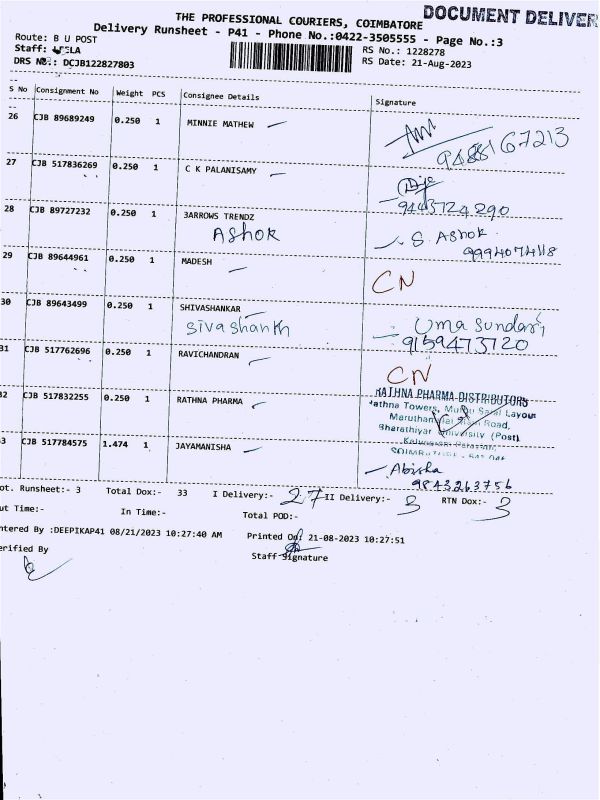 DOCUMENT DELIVER
THE PROFESSIONAL COURIERS, COIMBATORE
Delivery Runsheet - P41 - Phone No.:0422-3505555 - Page No.:3
Route: B U POST
RS No.: 1228278
Staff:
DRS No.: DCJB122827803
RS Date: 21-Aug-2023
S No Consignment No Weight PCS Consignee Details Signature
26 CJB 89689249 0.250 1 MINNIE MATHEW
27 CJB 517836269 0.250 1 C K PALANISAMY
9443724290
28 CJB 89727232 0.250 1 3ARROWS TRENDZ
ASHOK S. ASHOK
9994074118
29 CJB 89644961 0.250 1 MADESH
CN
30 CJB 89643499 0.250 1 SHIVASHANKAR
Sivashankh Uma Sundari
9159473720
31 CJB 517762696 0.250 1 RAVICHANDRAN
CN
32 CJB 517832255 0.250 1 RATHNA PHARMA
RATHNA PHARMA DISTRIBUTORS
Rathna Towers, Layout
Road,
Bharathiyar University (Post)
33 CJB 517784575 1.474 1 JAYAMANISHA
Abisha
9843263756
ot. Runsheet:- 3 Total Dox:- 33 I Delivery:- 27 II Delivery:- 3 RTN Dox:- 3
ut Time:- In Time:- Total POD:-
ntered By :DEEPIKAP41 08/21/2023 10:27:40 AM Printed On: 21-08-2023 10:27:51
erified By
Staff Signature